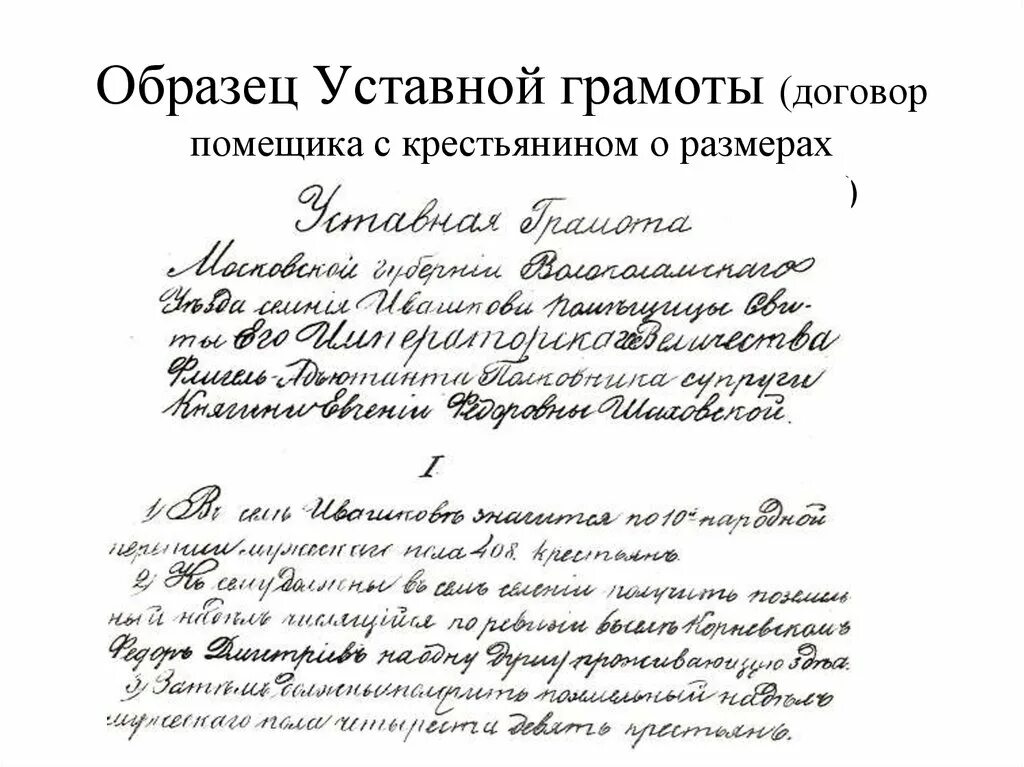 Образец Уставной грамоты (договор
помещика с крестьянином о размерах
)
Уставная Грамота
Московской губернiи Волоколамскаго
Уѣзда селенiя Ивашкова помѣщицы Сви-
ты Его Императорскаго Величества
Флигель-Адъютанта Полковника супруги
Княгини Евгенiи Фёдоровны Шаховской.
I
1) Въ селѣ Ивашковѣ значится по 10й народной
переписи мужескаго пола 408. крестьянъ.
2) Къ сему должны въ семъ селенiи получить поземель-
ный надѣлъ числящiйся по ревизiи въ селѣ Корневскомъ
Федоръ Дмитрiевъ на одну душу проживающую здѣсь.
3) Затѣмъ должны получить поземельный надѣлъ
мужескаго пола четыреста девять крестьянъ.